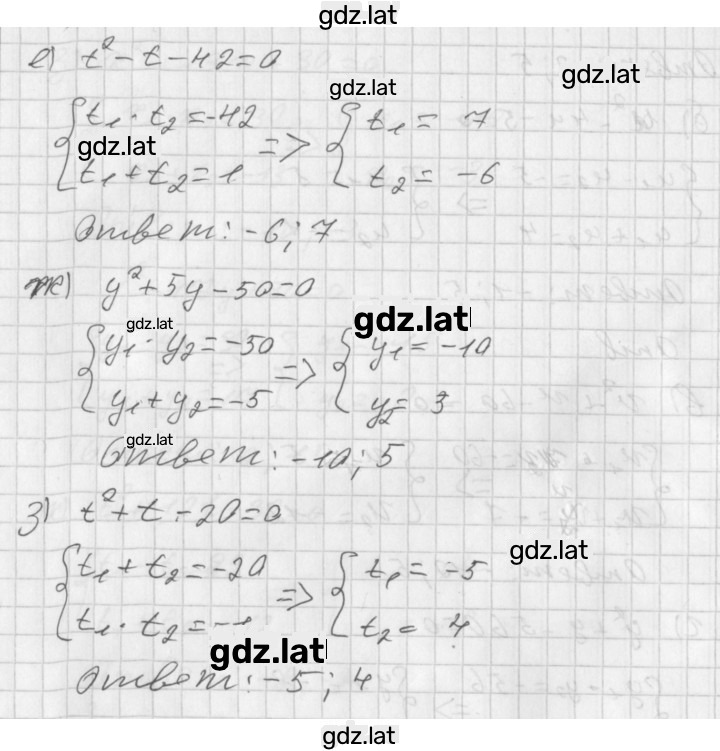 gdz.lat
е) t² - t - 42 = 0
gdz.lat
gdz.lat
{ t₁ · t₂ = -42 => { t₁ = 7
gdz.lat
t₁ + t₂ = 1 t₂ = -6
Ответ: -6; 7
ж) y² + 5y - 50 = 0
gdz.lat
gdz.lat
{ y₁ · y₂ = -50 => { y₁ = -10
y₁ + y₂ = -5 y₂ = 3
gdz.lat
Ответ: -10; 5
з) t² + t - 20 = 0
gdz.lat
{ t₁ + t₂ = -20 => { t₁ = -5
t₁ · t₂ = -1 t₂ = 4
gdz.lat
Ответ: -5; 4
gdz.lat